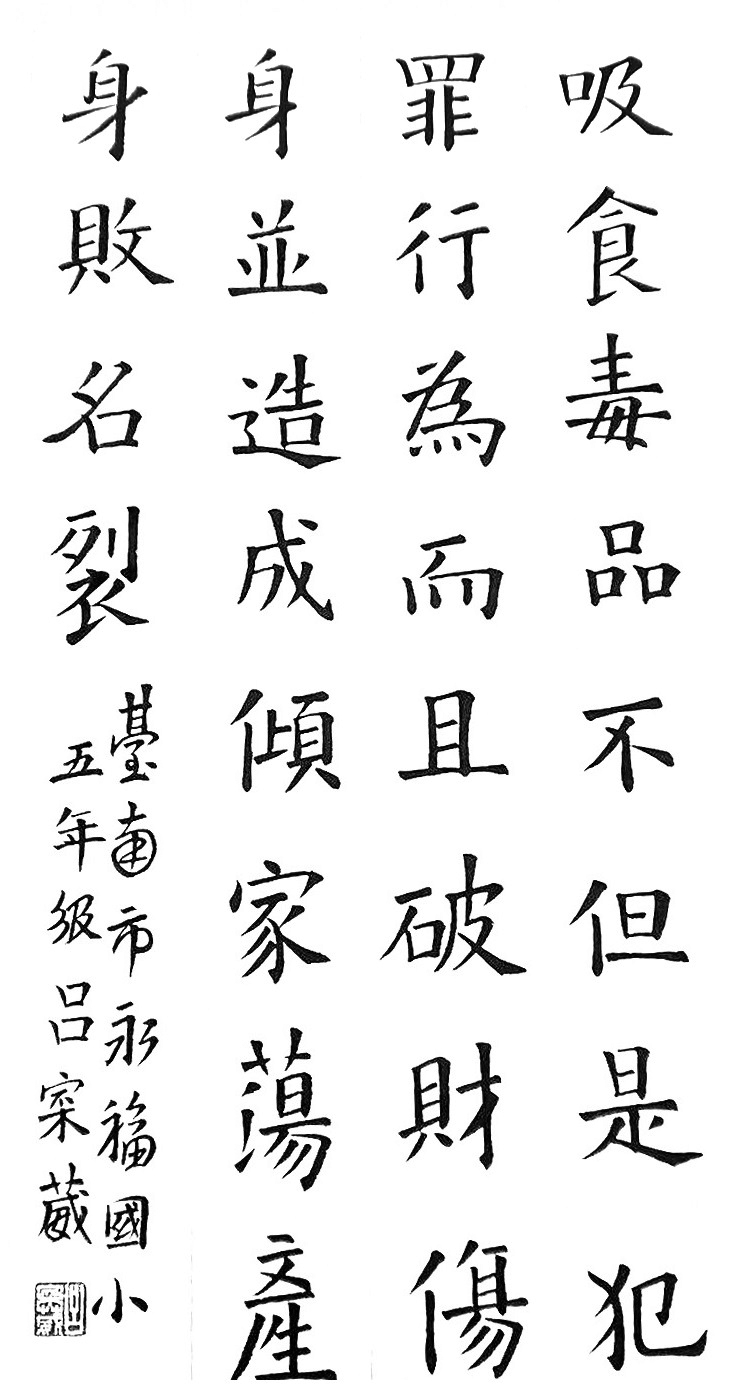 吸食毒品不但是犯
罪行為而且破財傷
身並造成傾家蕩產
身敗名裂
臺南市永福國小
五年級呂寀葳